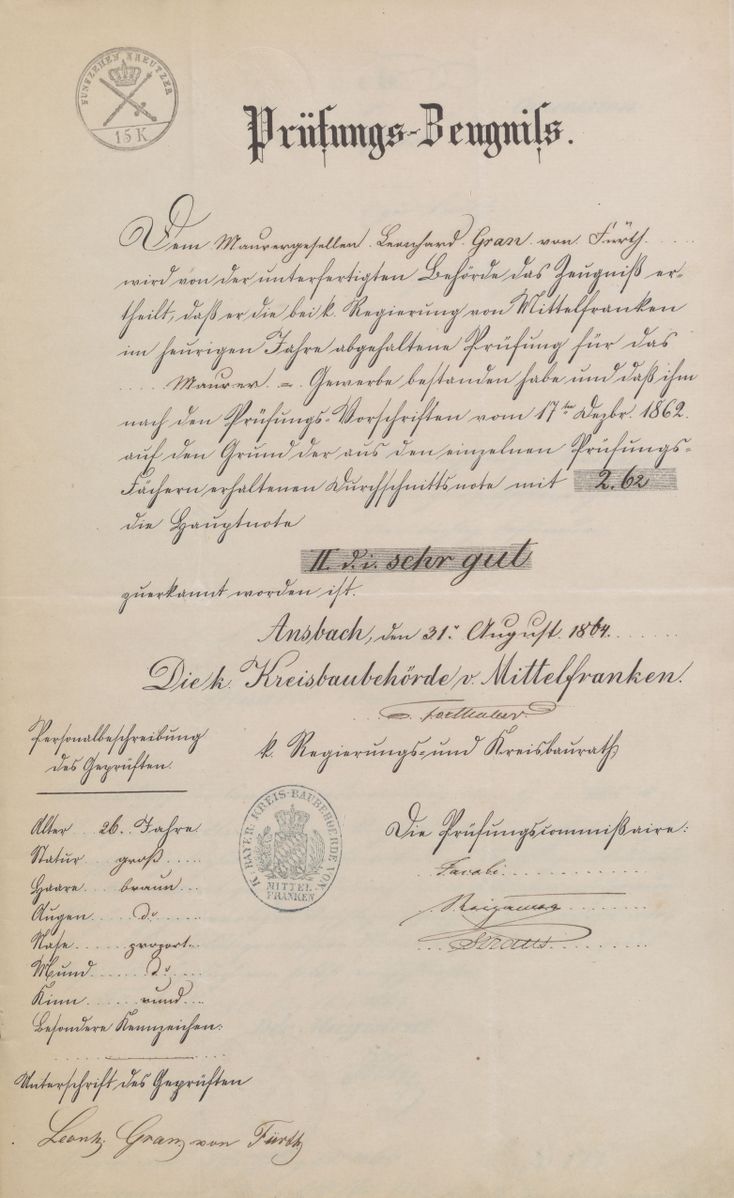 FUNFZEHEN KREUTZER
15 K
Prüfungs-Zeugniss.
Dem Maurergesellen Leonhard Gran von Fürth
wird von der unterfertigten Behörde das Zeugniß er-
theilt, daß er die bei k. Regierung von Mittelfranken
im heurigen Jahre abgehaltene Prüfung für das
Maurer = Gewerbe bestanden habe und daß ihm
nach den Prüfungs-Vorschriften vom 17ten Dezbr. 1862
auf den Grund der aus den einzelnen Prüfungs-
Fächern erhaltenen Durchschnittsnote mit 2.62
die Hauptnote
II. d. i. sehr gut
zuerkannt worden ist.
Ansbach, den 31. August 1864.
Die k. Kreisbaubehörde v. Mittelfranken.
k. Regierungs- und Kreisbaurath
Personalbeschreibung
des Geprüften.
Alter 26 Jahre
Statur groß
Haare braun
Augen do
Nase proport.
Mund do
Kinn rund
Besondere Kennzeichen:
Unterschrift des Geprüften
Leonh. Gran von Fürth
K. BAYER. KREIS-BAUBEHOERDE VON
MITTEL
FRANKEN
Die Prüfungscommißaire: